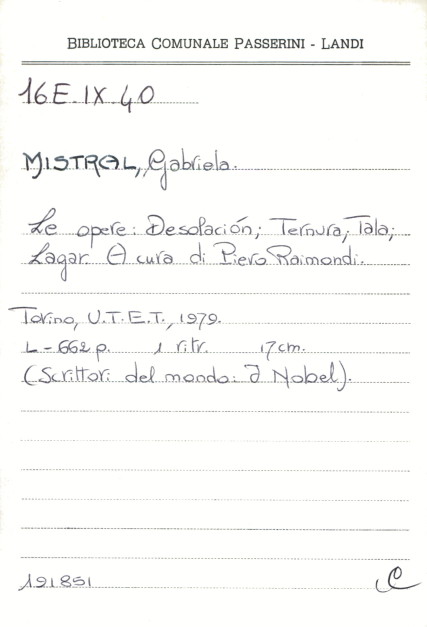 BIBLIOTECA COMUNALE PASSERINI - LANDI
16E.IX.40
MISTRAL, Gabriela.
Le opere: Desolación; Ternura; Tala;
Lagar. A cura di Piero Raimondi.
Torino, U.T.E.T., 1979.
L-662 p. 1 ritr. 17 cm.
(Scrittori del mondo: I Nobel).
191851
C